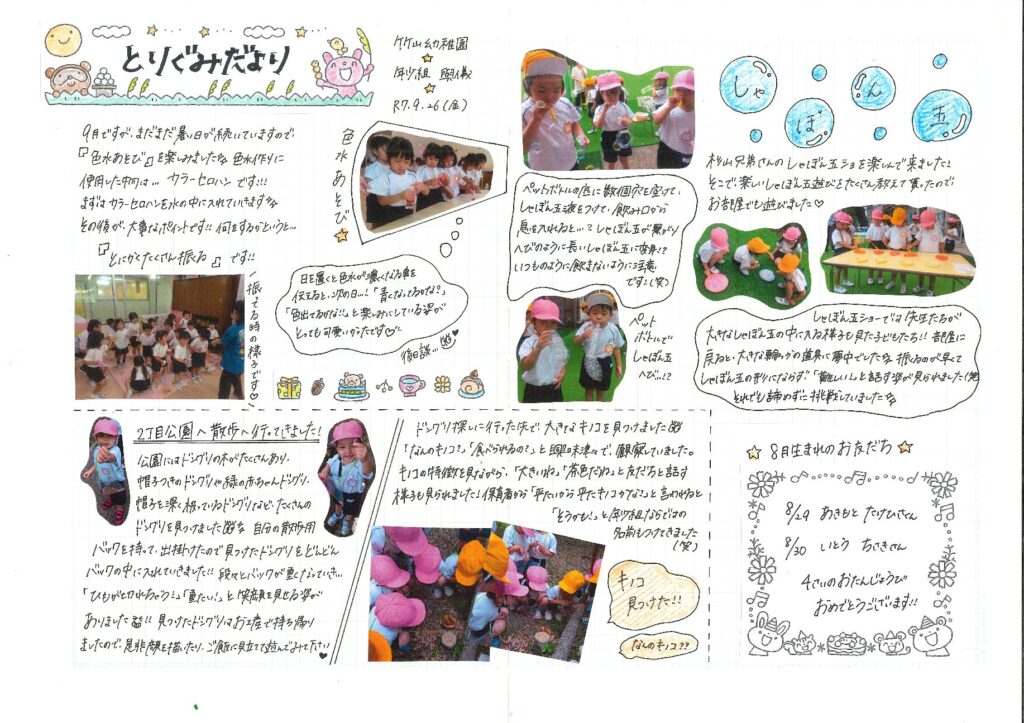 とりぐみだより
竹山幼稚園
年少組
R7.9.26(金)
9月ですが、まだまだ暑い日が続いていますので、
『色水あそび』を楽しみました。色水作りに
使用した物は… カラーセロハン です!!!
まずはカラーセロハンを水の中に入れていきます。
その後が、大事なポイントです!! 何をするかというと…
『とにかくたくさん振る』です!!
色水あそび
振ってる時の様子です♡
日を置くと色水が濃くなる事を
伝えると、次の日…!「青くなってるかな?」
「色出てるかな!!」と楽しみにしている姿が
とっても可愛いかったです♡
後日談…
ペットボトルの底に数個穴を空けて、
しゃぼん玉液をつけて、飲み口から
息を入れると…? しゃぼん玉が繋がり
へびのように長いしゃぼん玉に変身!?
いつものように飲まないように注意
です!(笑)
ペット
ボトルで
しゃぼん玉
へび…!?
しゃぼん玉
杉山兄弟さんのしゃぼん玉ショを楽しんで来ました!
そこで、楽しいしゃぼん玉遊びをたくさん教えて貰ったので、
お部屋でも遊びました♡
しゃぼん玉ショーでは先生たちが
大きなしゃぼん玉の中に入る様子も見た子どもたち!! 部屋に
戻ると、大きな輪っかの道具に夢中でした。振るのが早くて
しゃぼん玉の形にならず、「難しい!」と話す姿が見られました(笑)
それでも諦めずに挑戦していました
2丁目公園へ散歩へ行ってきました!
公園にはドングリの木がたくさんあり、
帽子つきのドングリや緑の赤ちゃんドングリ、
帽子を深く被っているドングリなど、たくさんの
ドングリを見つけました 自分の散歩用
バックを持って、出掛けたので見つけたドングリをどんどん
バックの中に入れていきました!! 段々とバックが重くなっていき…
「ひもがとれるよう!」「重たい!」と笑顔を見せる姿が
ありました!! 見つけたドングリはお土産で持ち帰り
ましたので、是非顔を描いたり、ご飯に見立て遊んでみて下さい♥
ドングリ探しに行った先で、大きなキノコを見つけました
「なんのキノコ?」「食べられるの?」と興味津々で、観察していました。
キノコの特徴を見ながら、「大きいね」「茶色だね」と友だちと話す
様子も見られました! 保育者から「平たいから平たキノコかな?」と言われると
「そうかも!」と年少組ならではの
名前もつけてきました
(笑)
キノコ
見つけた!!
なんのキノコ??
8月生まれのお友だち
8/29 あきもと たけひさくん
8/30 いとう ちさきさん
4さいのおたんじょうび
おめでとうございます!!